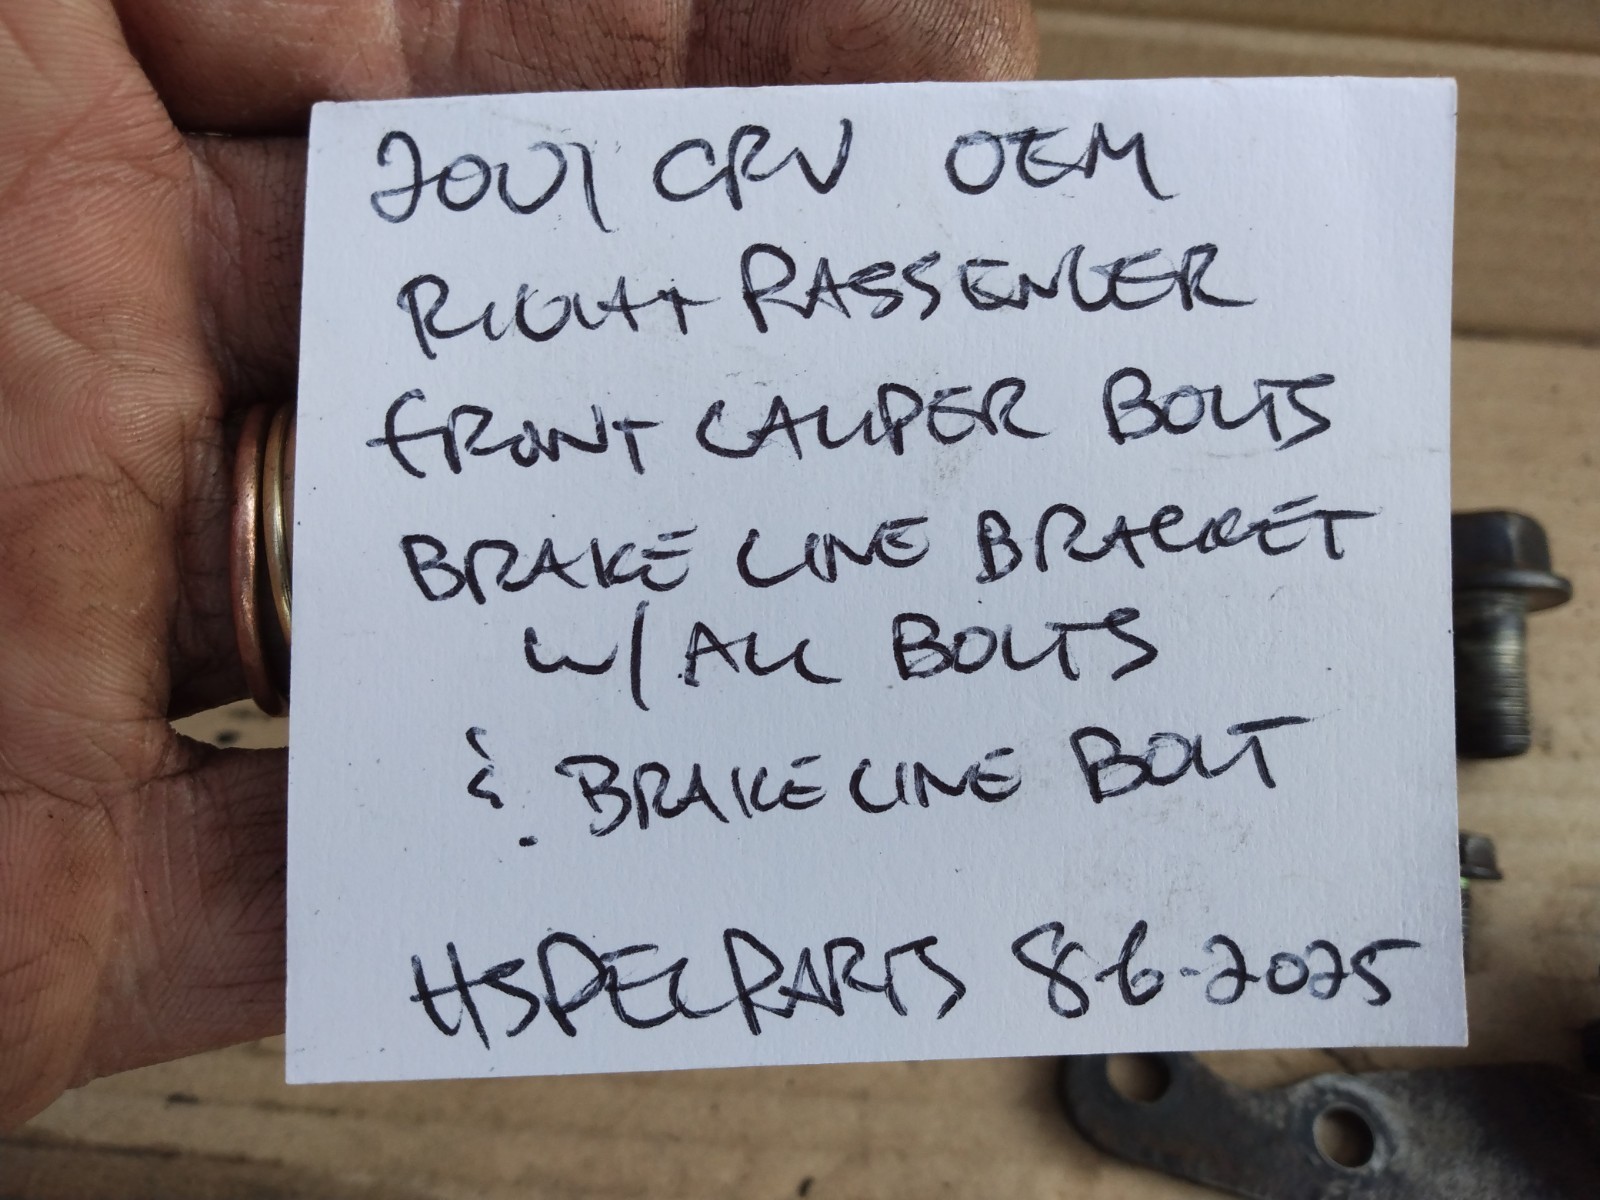 2001 CRV OEM
RIGHT PASSENGER
FRONT CALIPER BOLTS
BRAKE LINE BRACKET
W/ ALL BOLTS
& BRAKE LINE BOLT
HSPECPARTS 8-6-2025